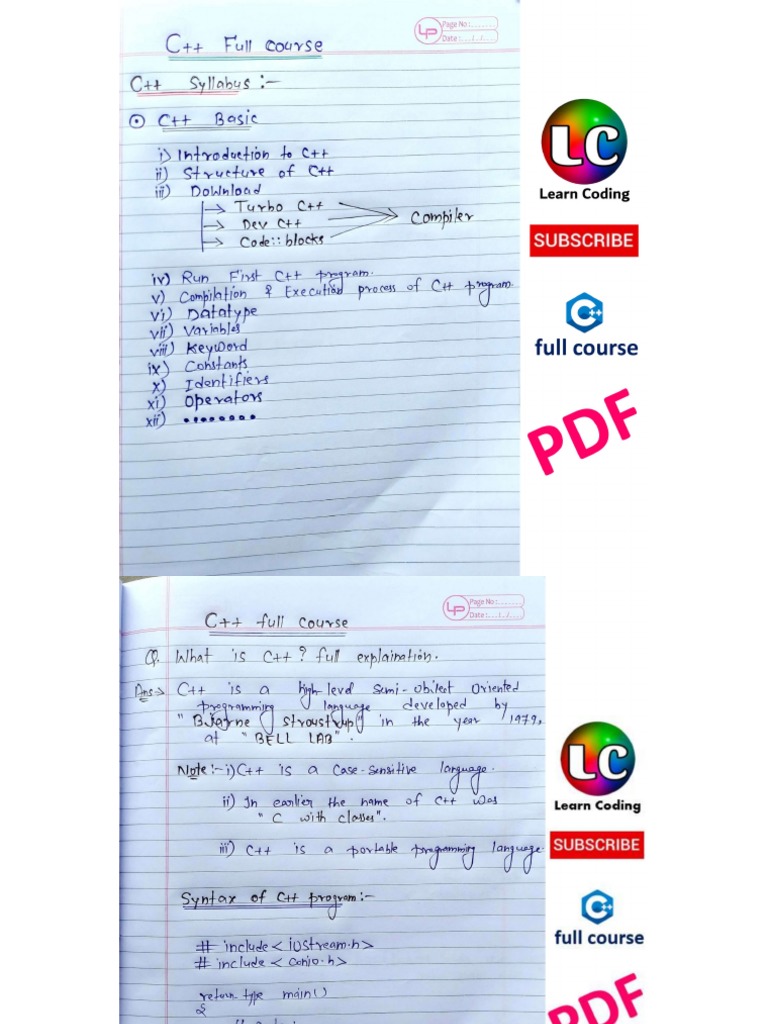 LP Page No : . . . . . . .
Date : . . . / . . / . . .
C++ Full course
C++ Syllabus :-
C++ Basic
i) Introduction to C++
ii) Structure of C++
iii) Download
Turbo C++
Dev C++
Code::blocks
Compiler
iv) Run First C++ program.
v) Compilation & Execution process of C++ program.
vi) Datatype
vii) Variables
viii) Keyword
ix) Constants
x) Identifiers
xi) Operators
xii) ........
LC
Learn Coding
SUBSCRIBE
C++
full course
PDF
LP Page No : . . . . . . .
Date : . . . / . . / . . .
C++ full course
Q. What is C++? full explaination.
Ans → C++ is a high-level semi-object oriented
programming language developed by
"Bjarne stroustrup" in the year 1979,
at "BELL LAB".
Note :- i) C++ is a case-sensitive language.
ii) In earlier the name of C++ was
"C with classes".
iii) C++ is a portable programming language.
Syntax of C++ program :-
# include < iostream.h >
# include < conio.h >
return type main()
{
LC
Learn Coding
SUBSCRIBE
C++
full course
PDF